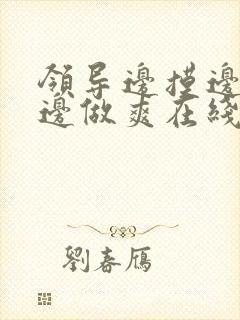 領导邊摸邊
邊做爽在綫
劉春鴈